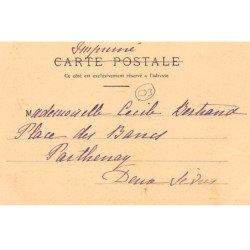 Imprimé
CARTE POSTALE
Ce côté est exclusivement réservé à l'adresse
Mademoiselle Cecile Bertrand
Place des Bancs
Parthenay
Deux Sèvres